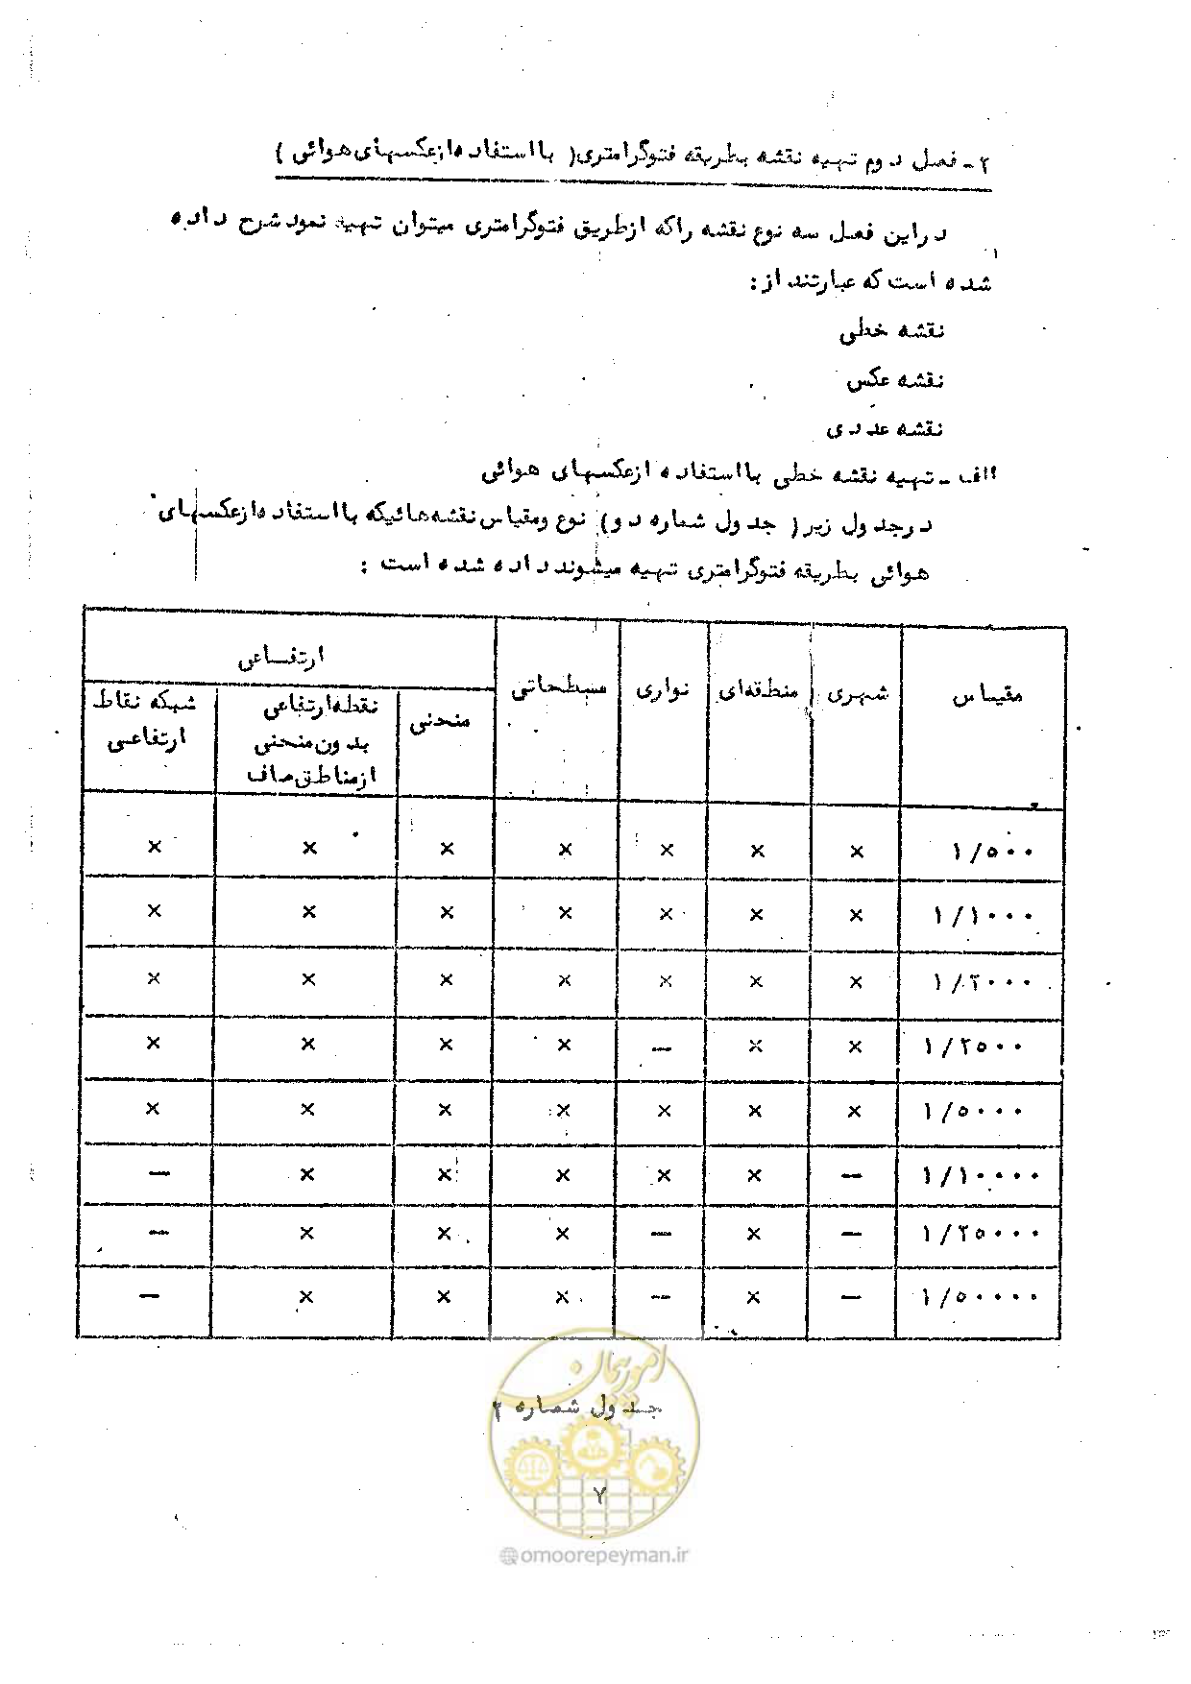 ۲ـ فصل دوم تهیه نقشه بطریقه فتوگرامتری( با استفاده ازعکسهای هوائی )
دراین فصل سه نوع نقشه راکه ازطریق فتوگرامتری میتوان تهیه نمود شرح داده
شده است که عبارتند از :
نقشه خطی
نقشه عکس
نقشه عددی
الف ـ تهیه نقشه خطی با استفاده ازعکسهای هوائی
درجدول زیر ( جدول شماره دو) نوع ومقیاس نقشه هائیکه با استفاده ازعکسهای
هوائی بطریقه فتوگرامتری تهیه میشوند داده شده است :
مقیاس شهری منطقه‌ای نواری مسطحاتی ارتفاعی
منحنی نقطه ارتفاعی بدون منحنی ازمناطق صاف شبکه نقاط ارتفاعی
۱/۵۰۰ × × × × × × ×
۱/۱۰۰۰ × × × × × × ×
۱/۲۰۰۰ × × × × × × ×
۱/۲۵۰۰ × × — × × × ×
۱/۵۰۰۰ × × × × × × ×
۱/۱۰۰۰۰ — × × × × × —
۱/۲۵۰۰۰ — × — × × × —
۱/۵۰۰۰۰ — × — × × × —
امور پیمان
جدول شماره ۲
۷
@omoorepeyman.ir